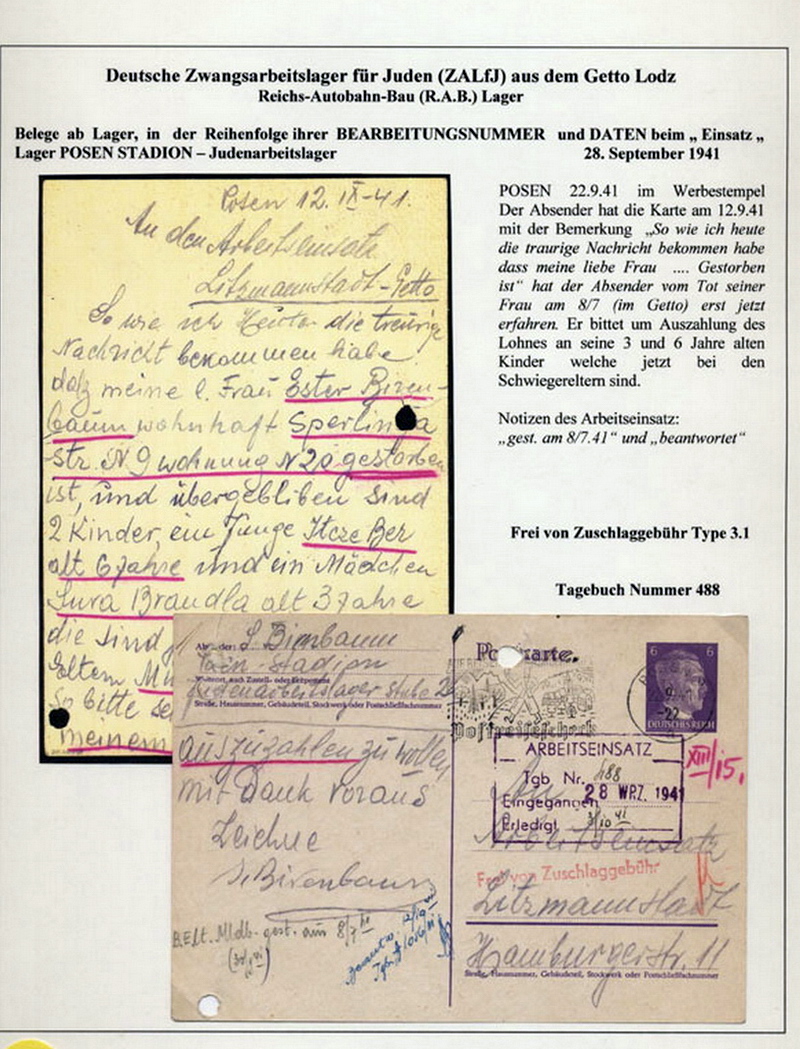 Deutsche Zwangsarbeitslager für Juden (ZALfJ) aus dem Getto Lodz
Reichs-Autobahn-Bau (R.A.B.) Lager
Belege ab Lager, in der Reihenfolge ihrer BEARBEITUNGSNUMMER und DATEN beim „ Einsatz „
Lager POSEN STADION – Judenarbeitslager 28. September 1941
Posen 12. IX-41.
An den Arbeitseinsatz
Litzmannstadt-Getto
So wie ich Heute die treurige
Nachricht bekommen habe
daß meine l. Frau Ester Biren-
baum wohnhaft Sperlinga
str. N 9 wohnung N 20 gestorben
ist, und übergebliben sind
2 Kinder, ein Junge Itcze Ber
alt 6 Jahre und ein Mädchen
Sura Brandla alt 3 Jahre
die sind
Eltern
So bitte
meinem
POSEN 22.9.41 im Werbestempel
Der Absender hat die Karte am 12.9.41
mit der Bemerkung „So wie ich heute
die traurige Nachricht bekommen habe
dass meine liebe Frau .... Gestorben
ist“ hat der Absender vom Tot seiner
Frau am 8/7 (im Getto) erst jetzt
erfahren. Er bittet um Auszahlung des
Lohnes an seine 3 und 6 Jahre alten
Kinder welche jetzt bei den
Schwiegereltern sind.
Notizen des Arbeitseinsatz:
„gest. am 8/7.41“ und „beantwortet“
Frei von Zuschlaggebühr Type 3.1
Tagebuch Nummer 488
Birenbaum
Stadion
Judenarbeitslager Stube
Straße, Hausnummer, Gebäudeteil, Stockwerk oder Postschließfachnummer
auszuzahlen zu wollen
mit Dank voraus
Zeichne
Birenbaum
gest. am 8/7
Postkarte
Postreisescheck
6 6
DEUTSCHES REICH
ARBEITSEINSATZ
Tgb. Nr. 488
Eingegangen 28 WRZ. 1941
Erledigt
XIII/15,
An
Arbeitseinsatz
Frei von Zuschlaggebühr
Litzmannstadt
Hamburgerstr. 11
Straße, Hausnummer, Gebäudeteil, Stockwerk oder Postschließfachnummer